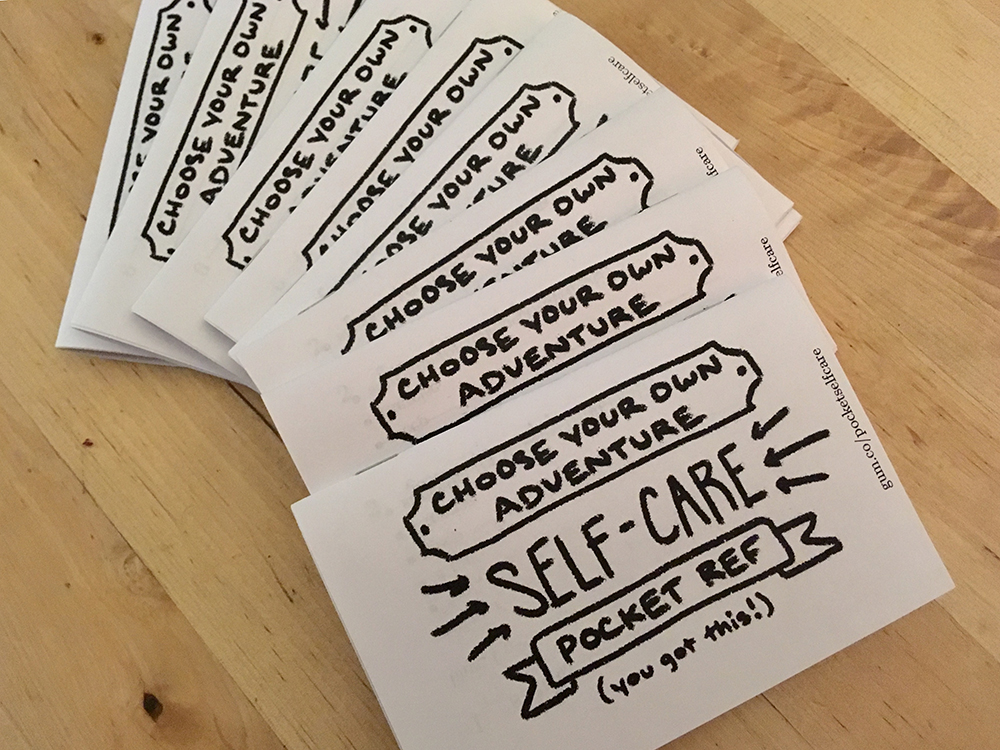 YOUR OWN
CHOOSE YOUR OWN
ADVENTURE
CHOOSE YOUR OWN
VENTURE
CHOOSE YOUR OWN
OSE YOUR OWN
TURE
etselfcare
CHOOSE YOUR OWN
NTURE
lfcare
CHOOSE YOUR OWN
ADVENTURE
elfcare
CHOOSE YOUR OWN
ADVENTURE
SELF-CARE
POCKET REF
(you got this!)
gum.co/pocketselfcare